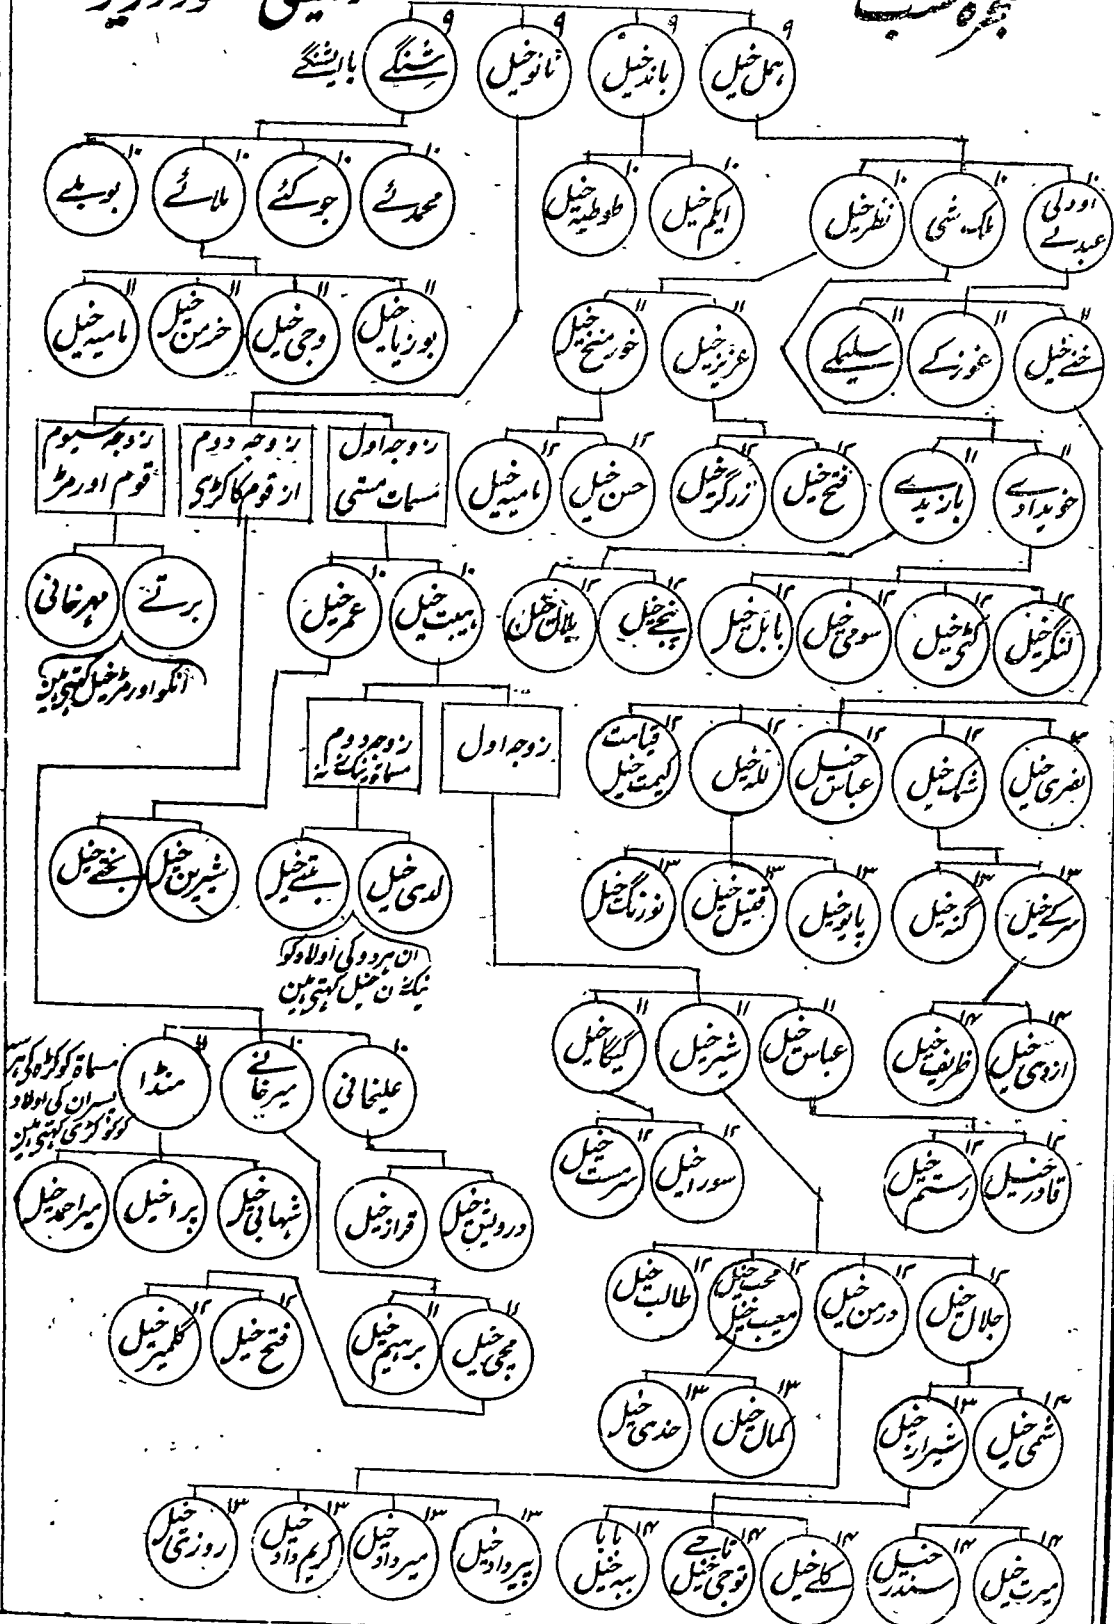 شجرہ نسب
۹ ہمل خیل
۹ باند خیل
۹ نانو خیل
۹ شنگے
یا ایشنگے
۱۰ اودلی عبدلے
۱۰ ملک شی
۱۰ نظر خیل
۱۰ ایکم خیل
۱۰ طوطیہ خیل
۱۰ محمدئے
۱۰ جوکئے
۱۰ ملائے
بوبلے
۱۱ خنے خیل
۱۱ غوزکے
۱۱ سلیمکے
۱۱ عزیز خیل
۱۱ خورمنخ خیل
۱۱ بوزیا خیل
۱۱ وجی خیل
۱۱ خرمن خیل
۱۱ مامیہ خیل
۱۱ خویدادے
۱۱ بازیدے
۱۲ فتح خیل
۱۲ زرگر خیل
۱۲ حسن خیل
۱۲ مامیہ خیل
زوجہ اول
مسمات مستی
زوجہ دوم
از قوم کاکڑی
زوجہ سیوم
قوم اورمڑ
۱۲ لنگر خیل
۱۲ گٹی خیل
۱۲ سومی خیل
۱۲ بابل خیل
۱۲ پنجے خیل
۱۲ بلال خیل
۱۰ ہیبت خیل
۱۰ عمر خیل
برتے
مہر خانی
انکو اورمڑ خیل کہتی ہین
۱۲ نصری خیل
۱۲ شمک خیل
۱۲ عباس خیل
۱۲ للہ خیل
۱۲ قیامت کیمت خیل
زوجہ اول
زوجہ دوم
۱۳ سرکے خیل
۱۳ گنہ خیل
۱۳ پایو خیل
۱۳ فقیل خیل
۱۳ نورنگ خیل
لدی خیل
بتے خیل
شیرین خیل
بختے خیل
ان ہر دو کی اولاد کو
خیل کہتی ہین
۱۴ ازدی خیل
۱۴ ظریف خیل
۱۱ عباس خیل
۱۱ شیر خیل
۱۱ گیگا خیل
۱۰ علیخانی
۱۰ میرخانے
منڈا
مسماۃ کوکڑہ کی ہر سہ
پسران کی اولاد
کو کوکڑی کہتی ہین
۱۲ قادر خیل
۱۲ رستم خیل
۱۲ سورا خیل
۱۲ سرمست خیل
درویش خیل
قراز خیل
شہابی خیل
پرا خیل
میر احمد خیل
۱۲ جلال خیل
۱۲ درمن خیل
محب خیل
معیب خیل
۱۲ طالب خیل
۱۱ مچی خیل
۱۱ برہیم خیل
۱۲ فتح خیل
۱۲ گلمیر خیل
۱۳ شمی خیل
۱۳ شیراز خیل
۱۳ کمال خیل
۱۳ خدمی خیل
۱۴ میرت خیل
۱۴ سندر خیل
۱۴ کالے خیل
۱۴ تاجے
توجی خیل
۱۴ بابا
ببہ خیل
۱۳ پیرداد خیل
۱۳ میرداد خیل
۱۳ کریم داد خیل
۱۳ روزتی خیل